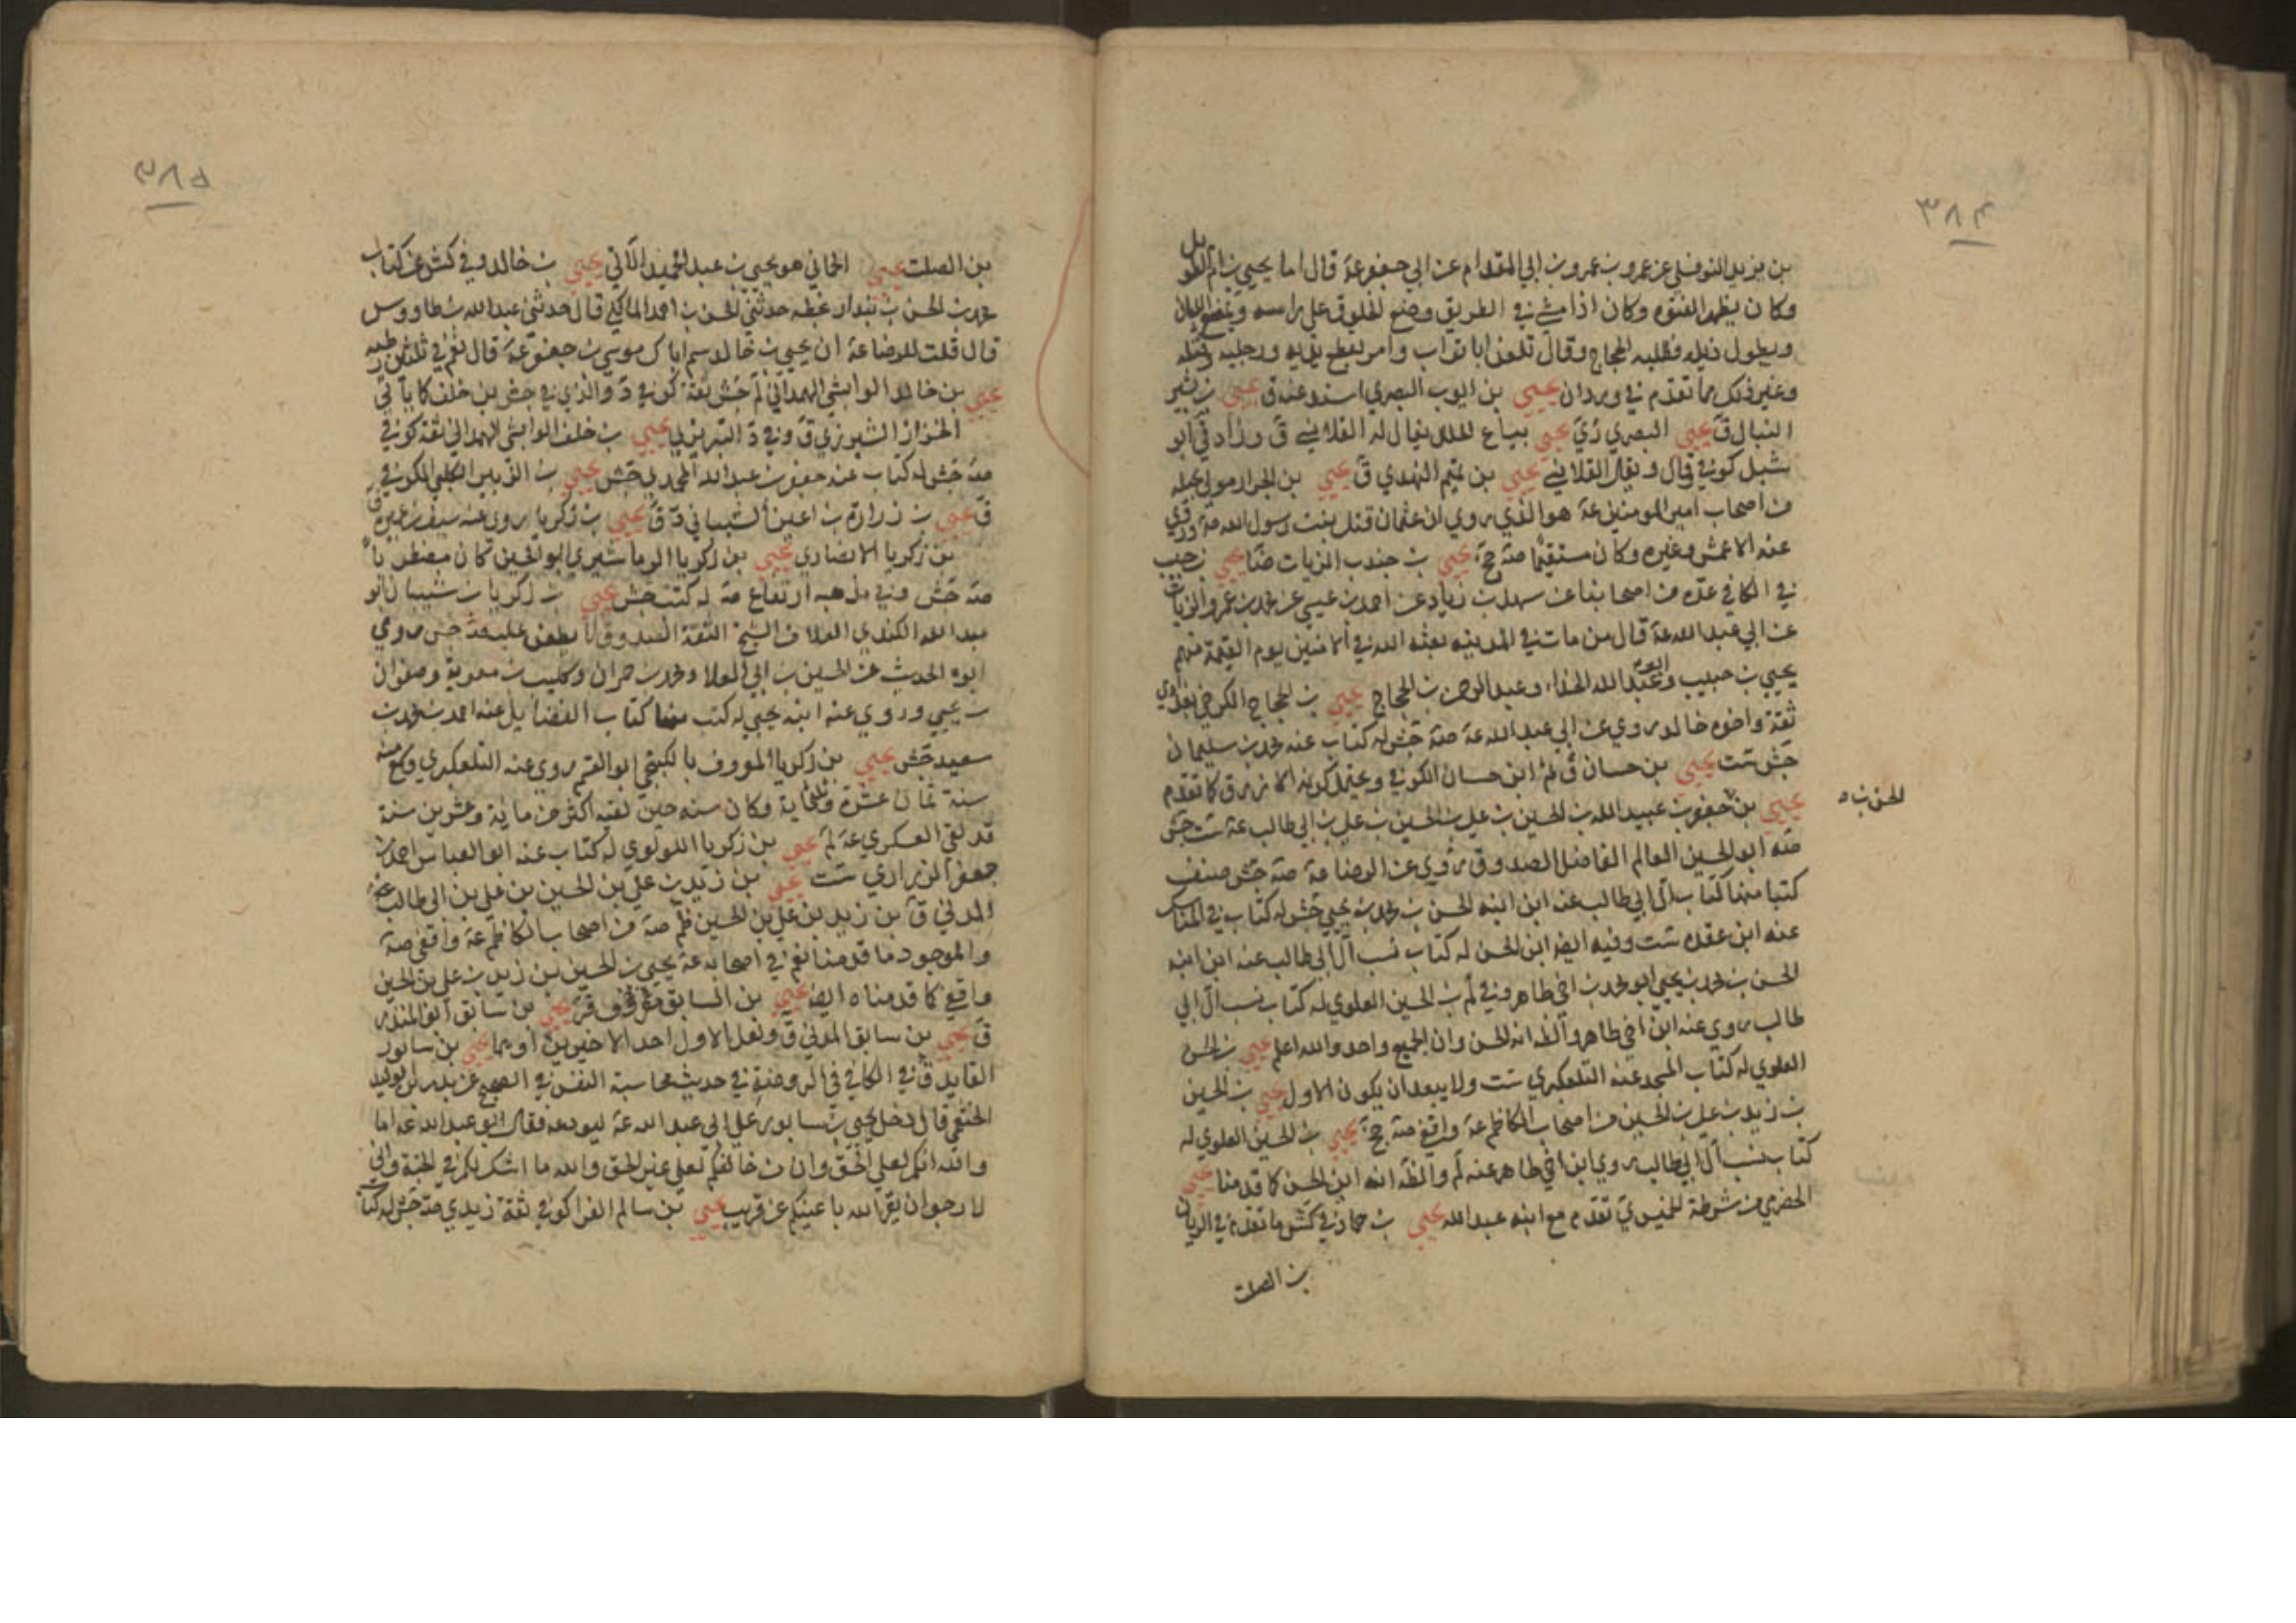 ٣٨٤
بن يزيد النوفلي عن عمرو بن عمرو بن ابي المقدام عن ابي جعفر عة قال اما يحيى بن ام الطويل
وكان يظهر الفتوه وكان اذا مشى في الطريق وضع الخلوق على راسه ويمضغ اللبان
ويطول ذيله فطلبه الحجاج وقال تلعن ابا تراب وامر بقطع يديه ورجليه وقتله
وغير ذلك مما تقدم في وردان يحيى بن ايوب البصري اسند عنه ق يحيى بن بشير
النبال ق يحيى البصري دي يحيى بياع الحلل يقال له القلانسي ق وزاد في ابو
شبل كوفي قال ويقال القلانسي يحيى بن تميم النهدي ق يحيى بن الجرار مولى بجيله
من اصحاب امير المومنين عة هو الذي روي ان عثمان قتل بنت رسول الله صة وروي
عنه الاعمش وغيره وكان مستقيما صة جخ يحيى بن جندب الزيات ضا يحيى بن حبيب
في الكافي عده من اصحابنا عن سهل بن زياد عن احمد بن عيسى عن محمد بن عمرو الزيات
عن ابي عبد الله عة قال من مات في المدينه بعثه الله في الامنين يوم القيمة منهم
يحيى بن حبيب وابو عبيد الله الحذاء وعبد الرحمن بن الحجاج يحيى بن الحجاج الكرخي بغدادي
ثقة واخوه خالد روي عن ابي عبد الله عة صة جش له كتاب عنه محمد بن سليمان
جش ست يحيى بن حسان ق ثم ابن حسان الكوفي ويحتمل كونه الازرق كما تقدم
يحيى بن جعفر بن عبيد الله بن الحسين بن علي بن الحسين بن علي بن ابي طالب عة ست جش
الحسن بن ٥
صه ابو الحسين العالم الفاضل الصدوق روي عن الرضا عة صة جش صنف
كتبا منها كتاب ال ابي طالب عنه ابن ابنه الحسن بن محمد بن يحيى جش له كتاب في المناسك
عنه ابن عقده ست وفيه ايضا ابن الحسن له كتاب نسب ال ابي طالب عنه ابن ابنه
الحسن بن محمد بن يحيى ابو محمد بن اخي طاهر وفي لم بن الحسين العلوي له كتاب نسب ال ابي
طالب روي عنه ابن اخي طاهر والظ انه الحسن وان الجميع واحد والله اعلم يحيى بن الحسن
العلوي له كتاب المسجد عنه التلعكبري ست ولا يبعد ان يكون الاول يحيى بن الحسين
بن زيد بن علي بن الحسين من اصحاب الكاظم عة واقفي صة جخ يحيى بن الحسين العلوي له
كتاب نسب ال ابي طالب روي ابن اخي طاهر عنه لم والظ انه ابن الحسن كما قدمنا يحيى
الحضرمي من شرطة الخميس ي تقدم مع ابنه عبد الله يحيى بن حماد في كش ما تقدم في الريان
بن الصلت
٣٨٥
بن الصلت يحيى الحماني هو يحيى بن عبد الحميد الآتي يحيى بن خالد وفي كش عن كتاب
محمد بن الحسن بن بندار بخطه حدثني الحسن بن احمد المالكي قال حدثني عبد الله بن طاووس
قال قلت للرضا عة ان يحيى بن خالد سم اباك موسى بن جعفر عة قال نعم في ثلاثين رطبه
يحيى بن خالد الوابشي الهمداني لم جش ثقة كوفي د والذي في جش بن خلف كما ياتي
الخزاز الشيرزي ق وفي د التبريزي يحيى بن خلف الوابشي الهمداني ثقة كوفي
صة جش له كتاب عنه جعفر بن عبد الله المحمدي جش يحيى بن الزبير الكلبي الكوفي
ق يحيى بن زرارة بن اعين الشيباني د ق يحيى بن زكريا روي عنه سيف بن عميره
بن زكريا الانصاري يحيى بن زكريا الرماشيري ابو الحسين كان مضطربا
صة جش وفي مذهبه ارتفاع صة له كتب جش يحيى بن زكريا بن شيبان ابو
عبد الله الكندي العلاف الشيخ الثقة الصدوق لا يطعن عليه صة جش روي
ابوه الحديث عن الحسين بن ابي العلا ومحمد بن حمران وكليب بن معوية وصفوان
بن يحيى وروي عنه ابنه يحيى له كتب منها كتاب الفضايل عنه احمد بن محمد بن
سعيد جش يحيى بن زكريا المعروف بالكنجي ابو القسم روي عنه التلعكبري وسمع منه
سنة ثمان عشرة وثلثماية وكان سنه حين لقيه اكثر من ماية وعشرين سنة
قد لقي العسكري عة لم يحيى بن زكريا اللولوي له كتاب عنه ابو العباس احمد بن
جعفر الزراري ست يحيى بن زيد بن علي بن الحسين بن علي بن ابي طالب عة
المدني ق بن زيد بن علي بن الحسين ظم صة من اصحاب الكاظم عة واقفي صة
والموجود ما قدمنا نعم في اصحابه عة يحيى بن الحسين بن زيد بن علي بن الحسين
واقفي كما قدمناه ايضا يحيى بن السابق يحيى بن سابق ابو المنذر
ق يحيى بن سابق المدني ق ولعل الاول احد الاخيرين او هما يحيى بن سابور
القايد ق في الكافي في الروضة في حديث محاسبة النفس في الصحيح عن بدر بن الوليد
الخثعمي قال دخل يحيى بن سابور على ابي عبد الله عة ليودعه فقال ابو عبد الله عة اما
والله انكم لعلى الحق وان من خالفكم لعلى غير الحق والله ما اشك لكم في الجنة واني
لارجو ان يقر الله باعينكم عن قريب يحيى بن سالم الفرا كوفي ثقة زيدي صة جش له كتاب